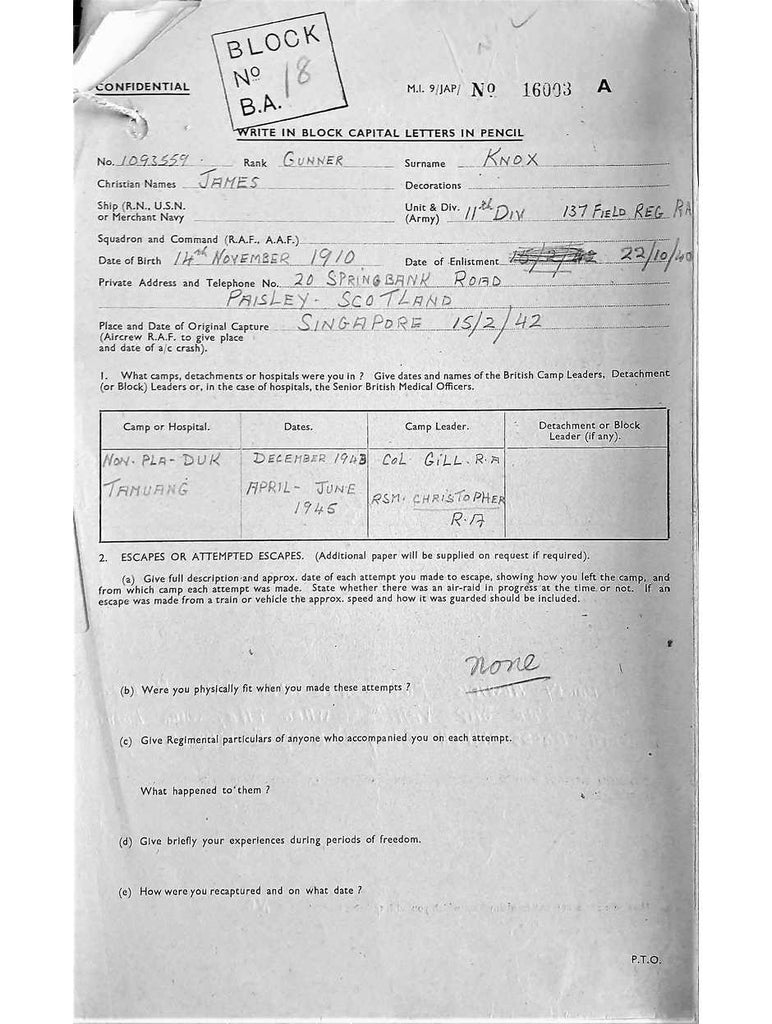 BLOCK
No 18
B.A.
CONFIDENTIAL
M.I. 9/JAP/ No 16003 A
WRITE IN BLOCK CAPITAL LETTERS IN PENCIL
No. 1093559. Rank GUNNER Surname KNOX
Christian Names JAMES Decorations
Ship (R.N., U.S.N. or Merchant Navy
Unit & Div. (Army) 11th DIV 137 FIELD REG RA
Squadron and Command (R.A.F., A.A.F.)
Date of Birth 14th NOVEMBER 1910 Date of Enlistment 15/2/42 22/10/40
Private Address and Telephone No. 20 SPRINGBANK ROAD
PAISLEY - SCOTLAND
Place and Date of Original Capture SINGAPORE 15/2/42
(Aircrew R.A.F. to give place
and date of a/c crash).
1. What camps, detachments or hospitals were you in ? Give dates and names of the British Camp Leaders, Detachment
(or Block) Leaders or, in the case of hospitals, the Senior British Medical Officers.
Camp or Hospital. Dates. Camp Leader. Detachment or Block Leader (if any).
NON. PLA-DUK DECEMBER 1943 COL GILL. R.A
TAMUANG APRIL - JUNE 1945 RSM. CHRISTOPHER R.A
2. ESCAPES OR ATTEMPTED ESCAPES. (Additional paper will be supplied on request if required).
(a) Give full description and approx. date of each attempt you made to escape, showing how you left the camp, and
from which camp each attempt was made. State whether there was an air-raid in progress at the time or not. If an
escape was made from a train or vehicle the approx. speed and how it was guarded should be included.
none
(b) Were you physically fit when you made these attempts ?
(c) Give Regimental particulars of anyone who accompanied you on each attempt.
What happened to them ?
(d) Give briefly your experiences during periods of freedom.
(e) How were you recaptured and on what date ?
P.T.O.